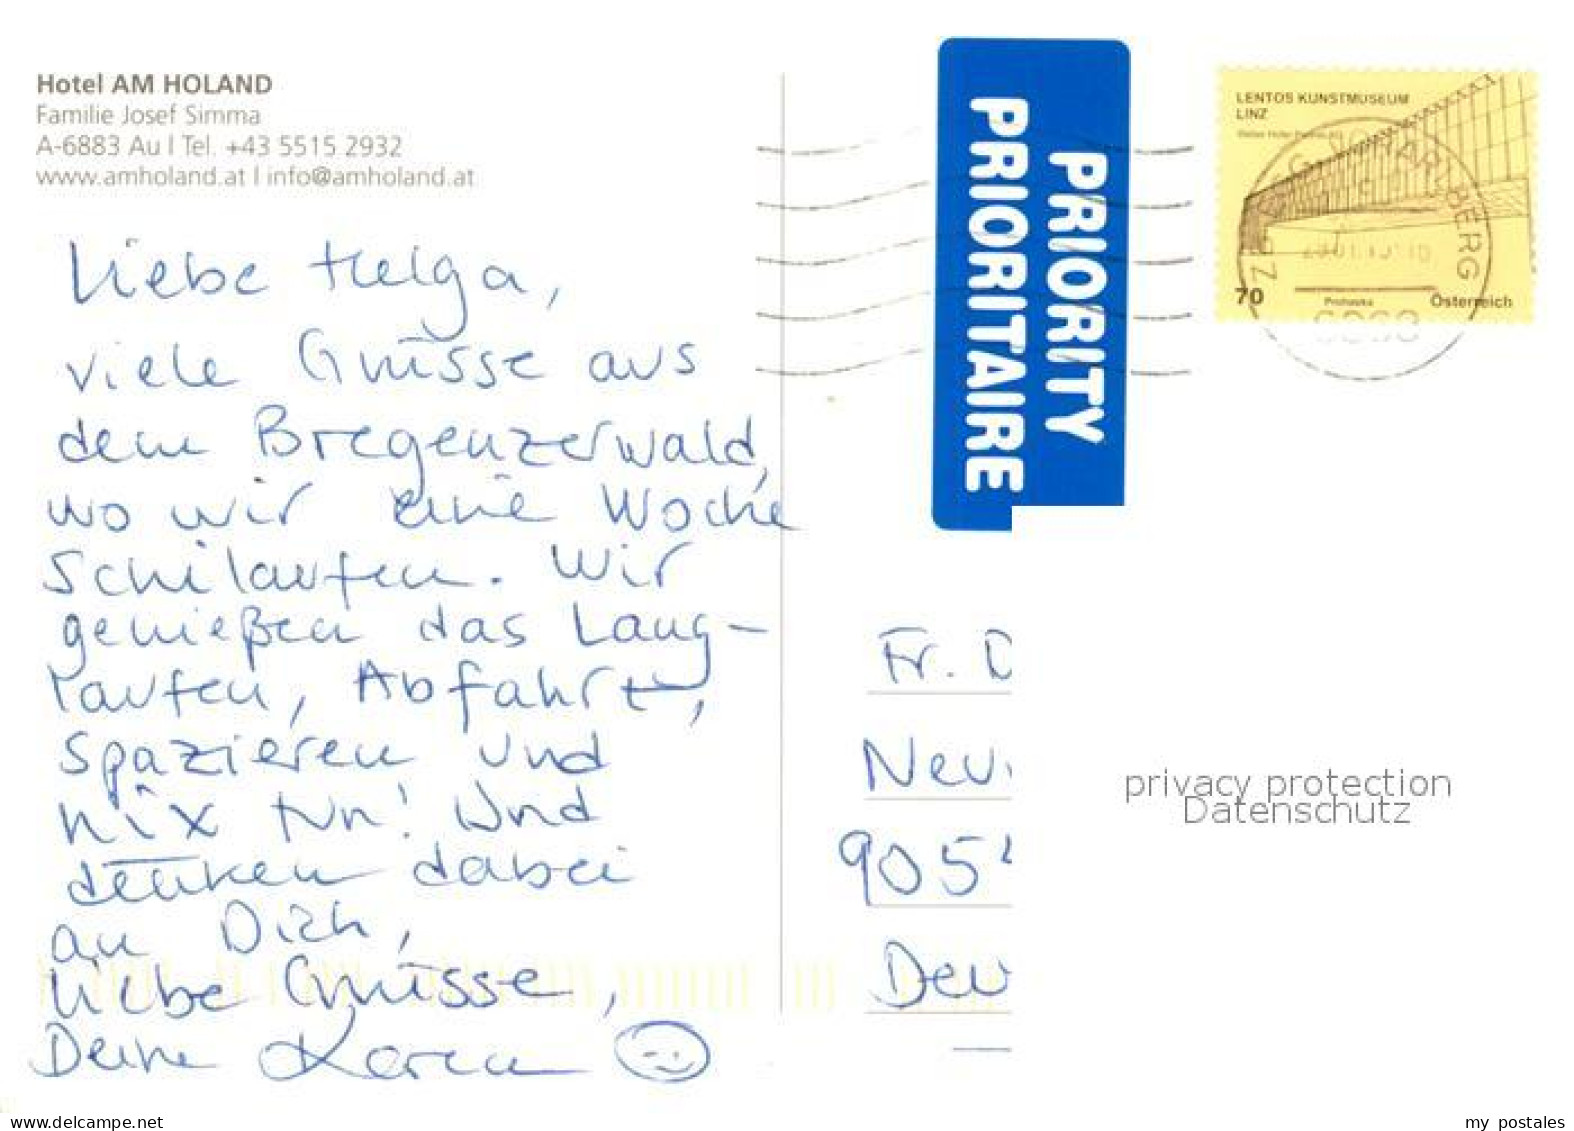 Hotel AM HOLAND
Familie Josef Simma
A-6883 Au | Tel. +43 5515 2932
www.amholand.at | info@amholand.at
Liebe Helga,
viele Grüsse aus
dem Bregenzerwald,
wo wir eine Woche
Schilaufen. Wir
genießen das Lang-
laufen, Abfahrt,
spazieren und
nix tun! Und
denken dabei
an Dich,
liebe Grüsse,
Deine Karen
PRIORITY
PRIORITAIRE
LENTOS KUNSTMUSEUM
LINZ
70
Prohaska
Österreich
VORARLBERG
6960
Fr. D
Neu
905
Deu
privacy protection
Datenschutz
www.delcampe.net
my_postales